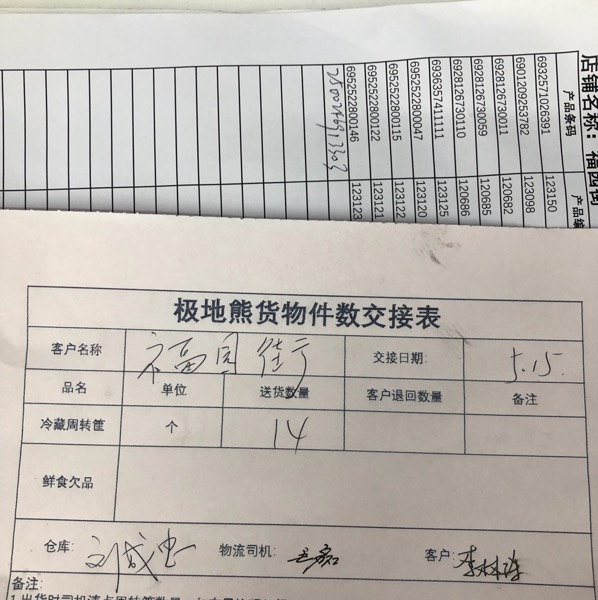 店铺名称：福西街
产品条码
产品编
6932571026391 123150
6901209253782 123098
6928126730011 120682
6928126730059 120685
6928126730110 120686
6936357411111 123125
6952522800047 123120
6952522800115 123122
6952522800122 123121
6952522800146 123123
极地熊货物件数交接表
客户名称 福园街 交接日期: 5.15.
品名 单位 送货数量 客户退回数量 备注
冷藏周转筐 个 14
鲜食欠品
仓库: 刘成忠 物流司机: 客户: 李林珠
备注: